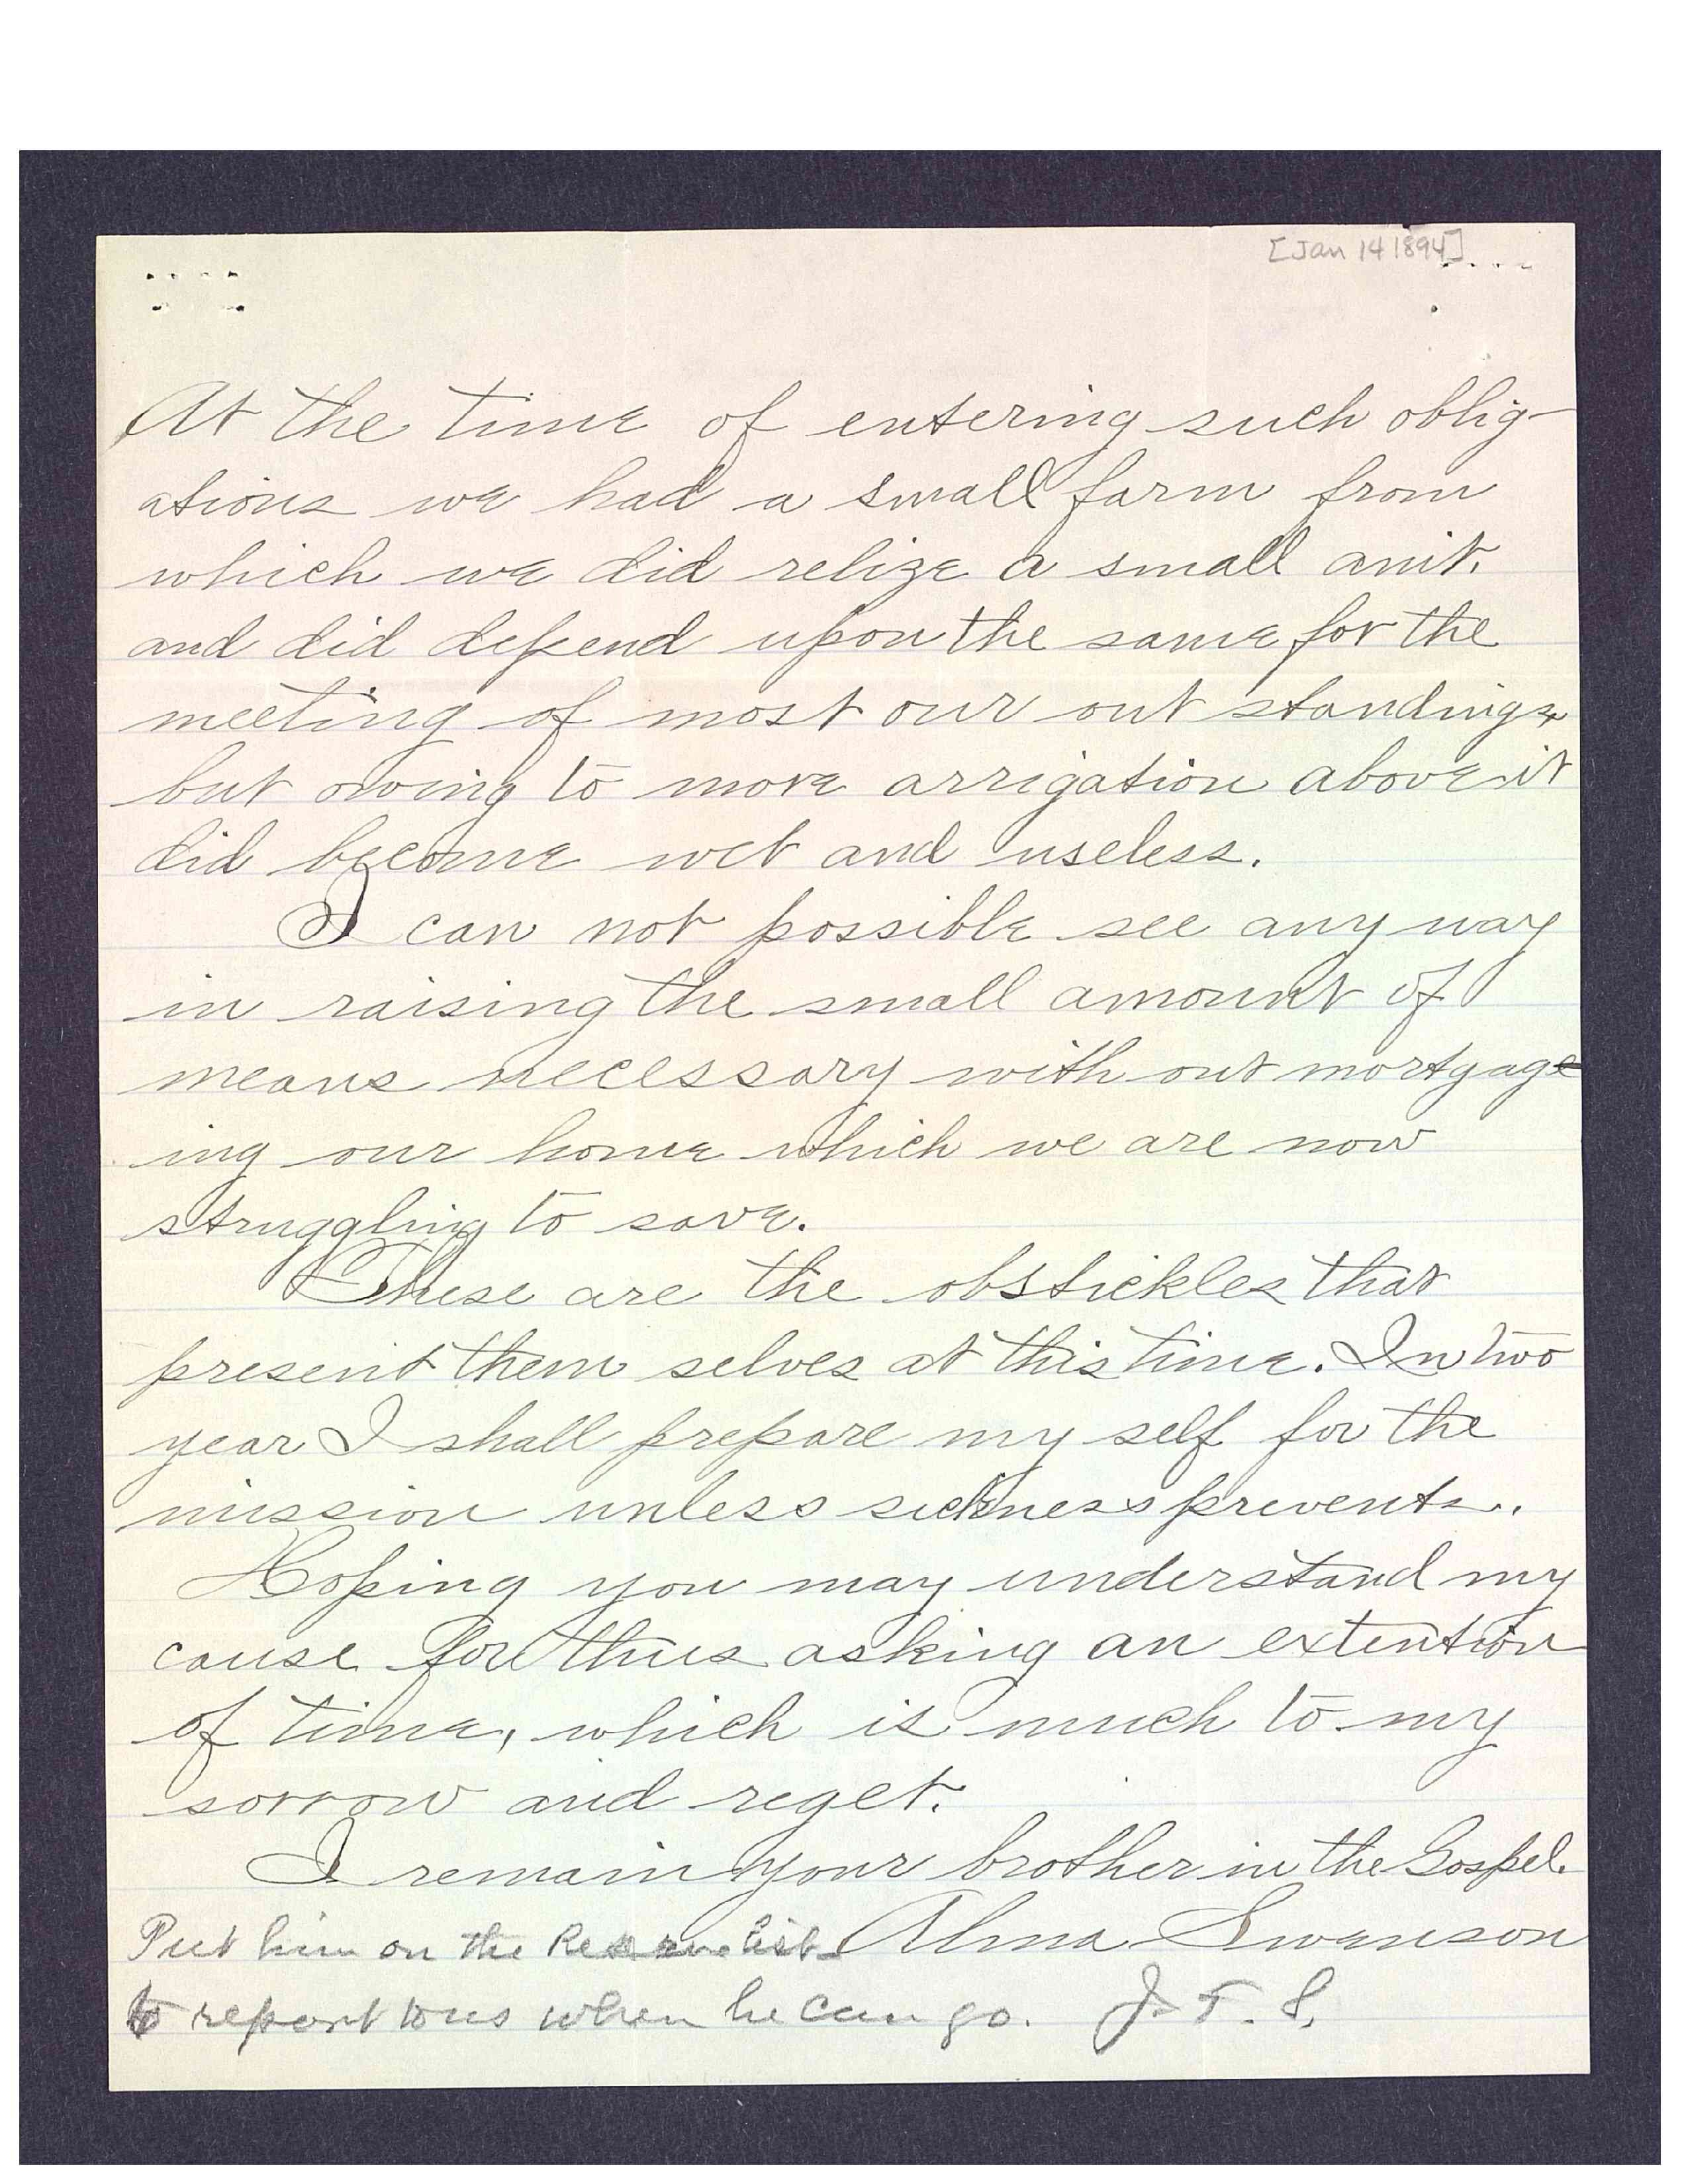 [Jan 14 1894]
At the time of entering such oblig-
ations we had a small farm from
which we did relize a small amt.
and did depend upon the same for the
meeting of most our out standings
but owing to more arrigation above it
did become wet and useless.
I can not possible see any way
in raising the small amount of
means necessary with out mortgage
ing our home which we are now
struggling to save.
These are the obstickles that
present them selves at this time. In two
year I shall prepare my self for the
mission unless sickness prevents.
Hoping you may understand my
cause for thus asking an extention
of time, which is much to my
sorrow and reget.
I remain your brother in the Gospel.
Alma Swanson
Put him on the Reserve list
to report to us when he can go. J. F. S.